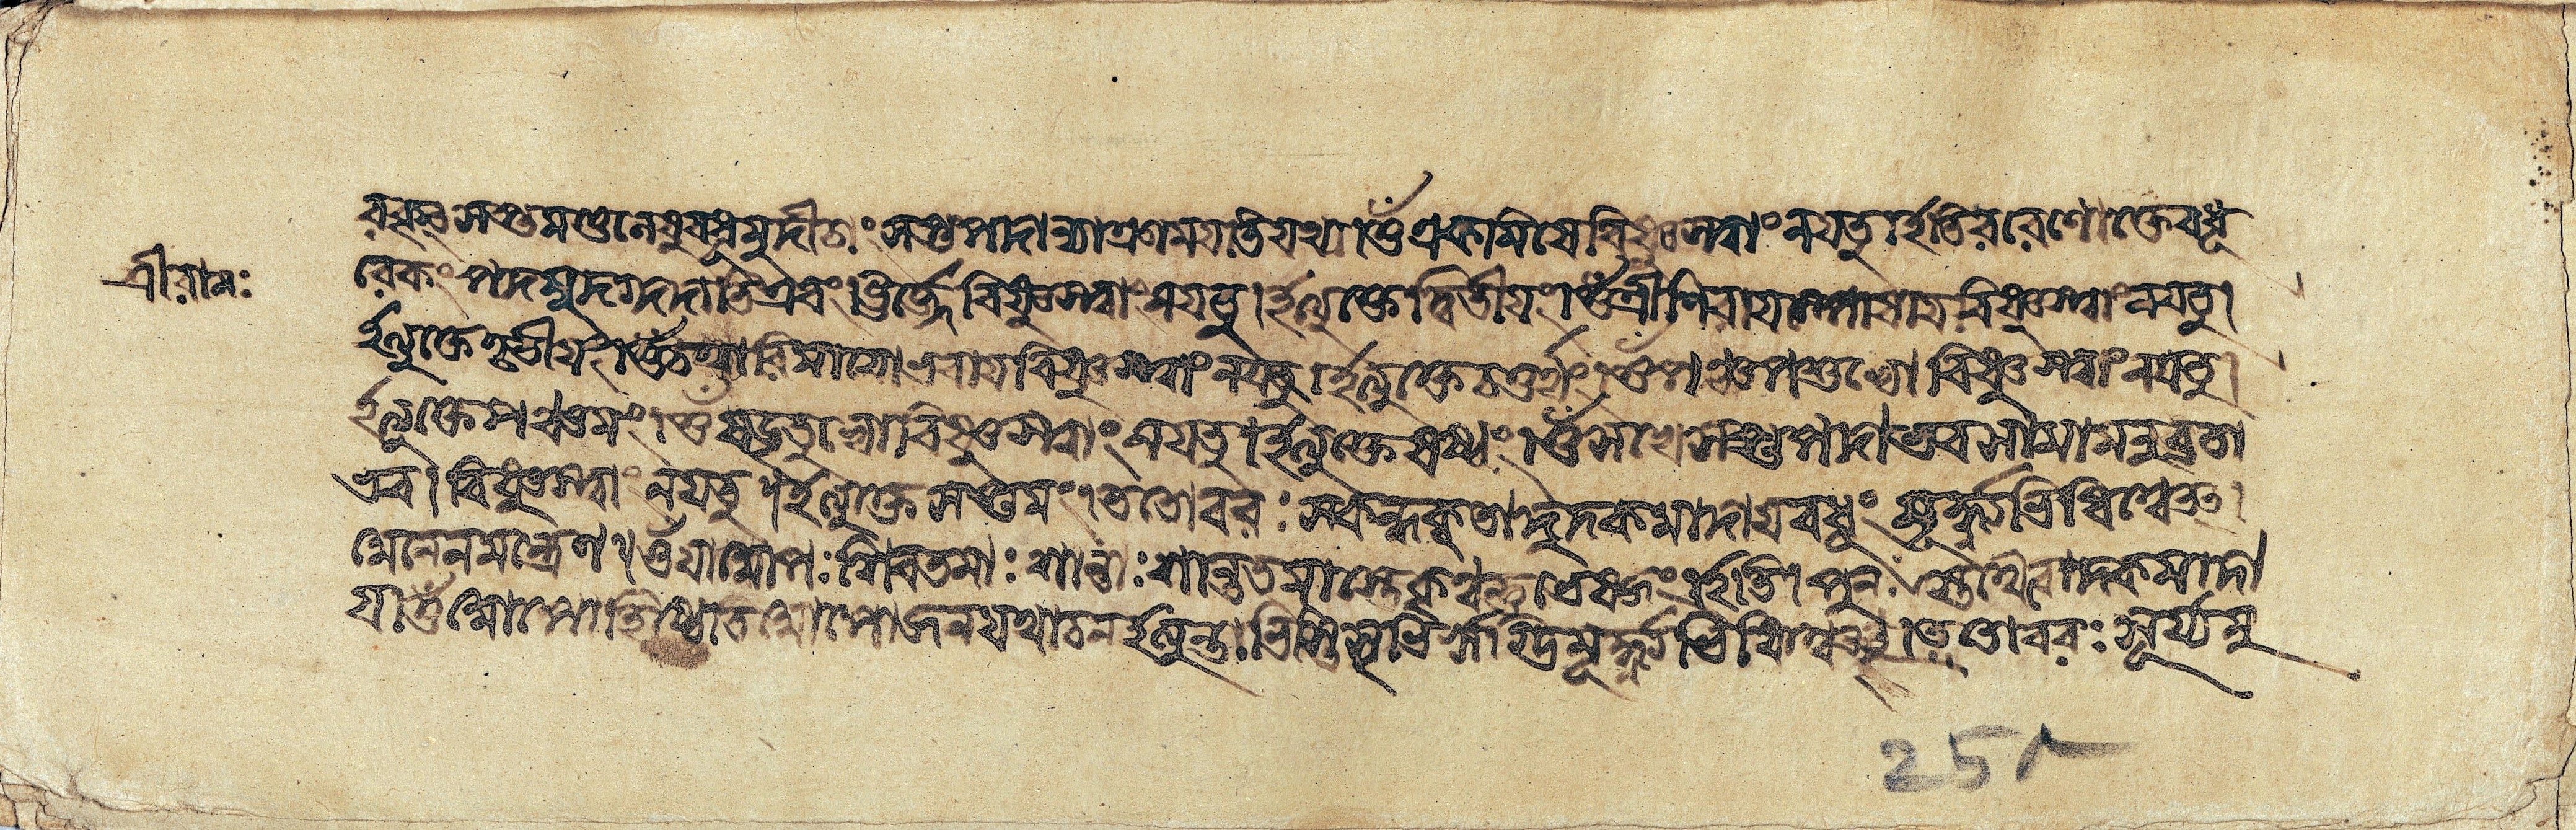 বরস্তু সপ্তমণ্ডলেষু বধূমুদীচীং সপ্তপদান্যাক্রাময়তি যথা ওঁ একমিষে বিষ্ণুস্ত্বাং নয়তু ইতি বরেণোক্তে বধূ
শ্রীরামঃ
রেকং পদমুদগ্দদাতি এবং । ওঁ ঊর্জ্জে বিষ্ণুস্ত্বাং নয়তু । ইত্যুক্তে দ্বিতীয়ং । ওঁ ত্রীণি রায়স্পোষায় বিষ্ণুস্ত্বাং নয়তু ।
ইত্যুক্তে তৃতীয়ং । ওঁ চত্বারি মায়োভবায় বিষ্ণুস্ত্বাং নয়তু । ইত্যুক্তে চতুর্থং । ওঁ পঞ্চ পশুভ্যো বিষ্ণুস্ত্বাং নয়তু ।
ইত্যুক্তে পঞ্চমং । ওঁ ষড়্ঋতুভ্যো বিষ্ণুস্ত্বাং নয়তু । ইত্যুক্তে ষষ্ঠং । ওঁ সখে সপ্তপদা ভব সা মামনুব্রতা
ভব । বিষ্ণুস্ত্বাং নয়তু । ইত্যুক্তে সপ্তমং । ততো বরঃ স্কন্ধকৃতাদুদকমাদায় বধূং মূর্দ্ধ্ন্যভিষিঞ্চে
নেন মন্ত্রেণ । ওঁ শিবতমাঃ শান্তাঃ শান্ততমাস্তে কৃণ্বন্তু ভেষজং । ইতি । পুনঃ স্তথৈবোদকমাদা
য় । ওঁ আপোহিষ্ঠেতি আপোজনয়থাচন ইত্যন্তাভিস্তিসৃভির্ মূর্দ্ধ্ন্যভিষিঞ্চতি । ততো বরঃ সূর্য্যমু
25